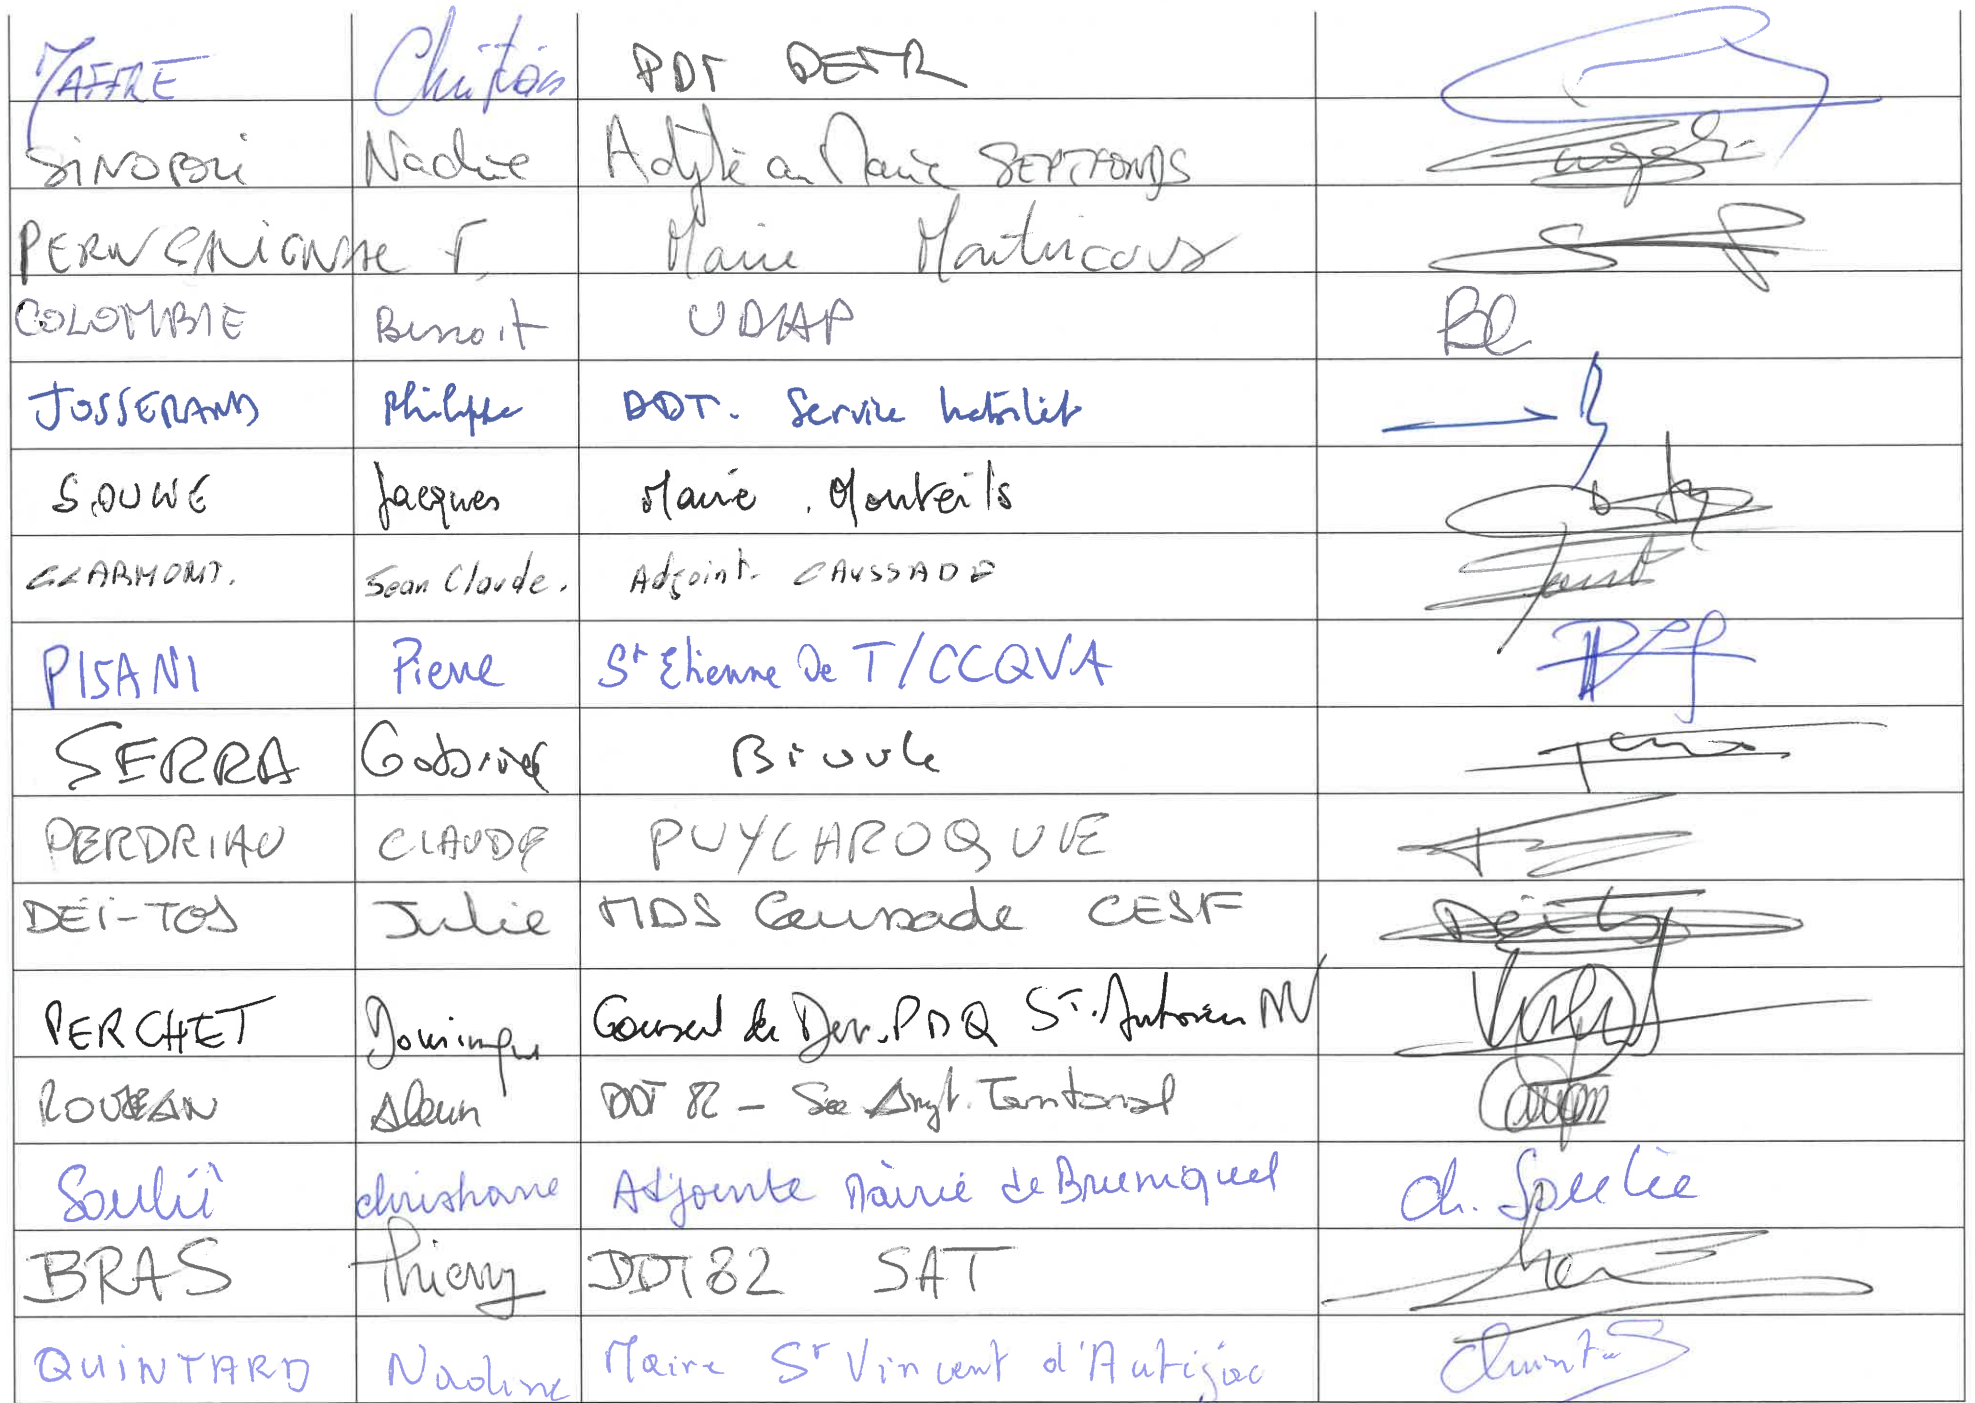 MAFFRE Christian PDT
SINOPOLI Nadine Adjte au Maire SEPTFONDS
F. Maire Montricoux
COLOMBIE Benoit UDAP BC
JOSSERAND Philippe DDT. Service habitat
SOULIE Jacques Maire. Monteils
CLARMONT. Jean Claude. Adjoint. CAUSSADE
PISANI Pierre St Etienne De T/CCQVA
SERRA Gabriel Bioule
PERDRIAU CLAUDE PUYLAROQUE
DEI-TOS Julie MDS Caussade CESF
PERCHET Dominique Conseil de Dev. St. Antonin NV
Alain DDT 82 - Territorial
Soulié christiane Adjointe Mairie de Bruniquel Ch. Soulié
BRAS Thierry DDT82 SAT
QUINTARD Nadine Maire St Vincent d'Autéjac